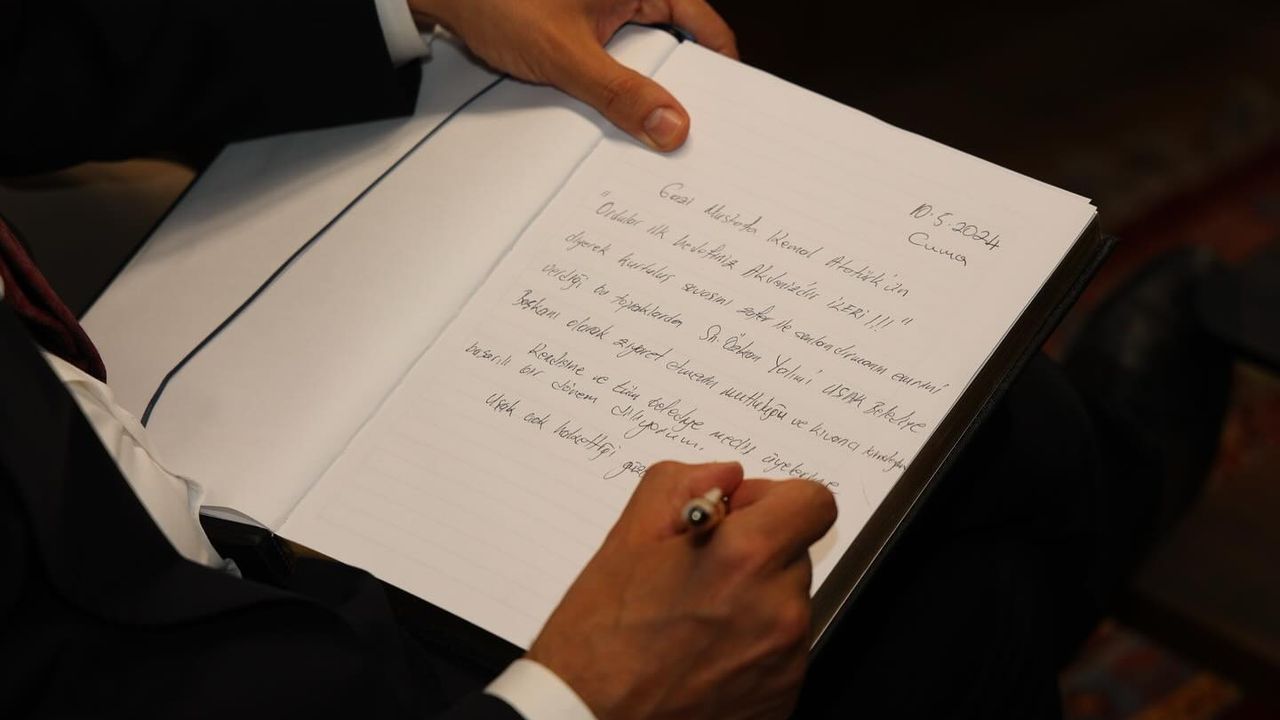 10.5.2024
Cuma
Gazi Mustafa Kemal Atatürk'ün
"Ordular ilk hedefiniz Akdenizdir İLERİ!!!"
diyerek kurtuluş savaşını zafer ile sonlandırmanın emrini
verdiği bu topraklarda Sn. Özkan Yalım'ı UŞAK Belediye
Başkanı olarak ziyaret etmenin mutluluğu ve kıvancı
Kendisine ve tüm belediye meclis üyelerine
başarılı bir dönem diliyorum.
Uşak'ın hakettiği